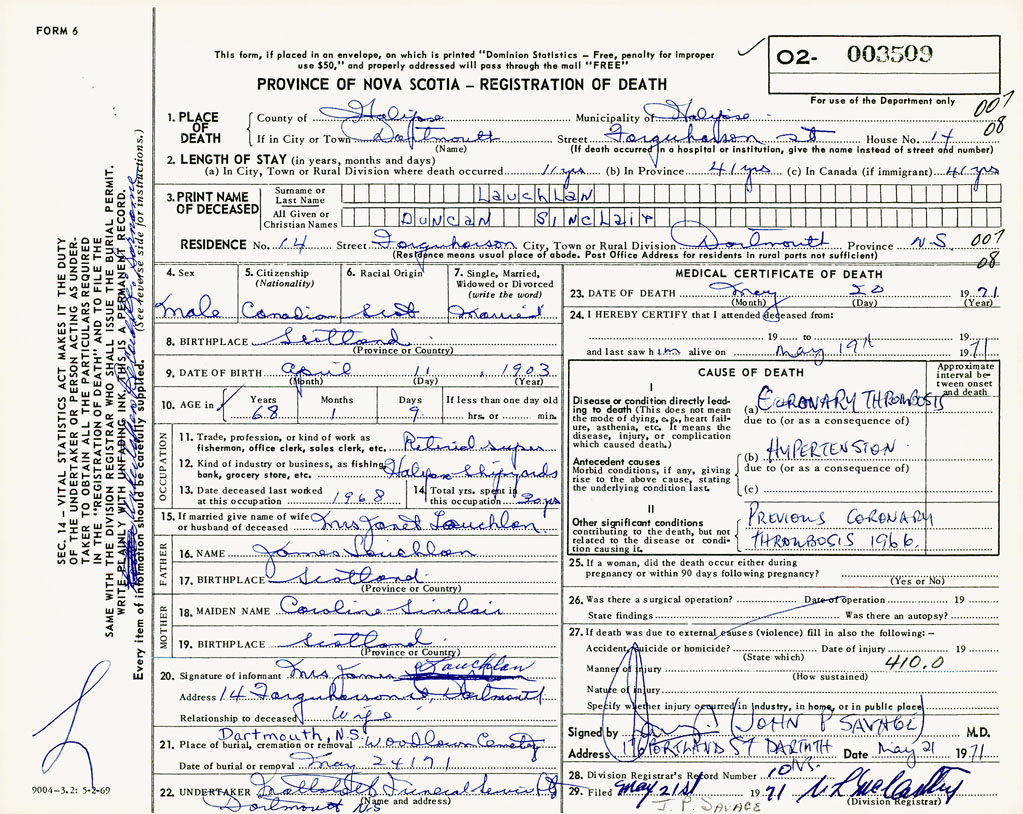 FORM 6
This form, if placed in an envelope, on which is printed "Dominion Statistics – Free, penalty for improper
use $50," and properly addressed will pass through the mail "FREE"
02- 003509
PROVINCE OF NOVA SCOTIA – REGISTRATION OF DEATH
For use of the Department only
007
08
1. PLACE OF DEATH
County of Halifax Municipality of Halifax
If in City or Town Dartmouth Street Farquharson St House No. 14
(Name) (If death occurred in a hospital or institution, give the name instead of street and number)
2. LENGTH OF STAY (in years, months and days)
(a) In City, Town or Rural Division where death occurred 11 yrs (b) In Province 41 yrs (c) In Canada (if immigrant) 41 yrs
3. PRINT NAME OF DECEASED
Surname or Last Name LAUCHLAN
All Given or Christian Names DUNCAN SINCLAIR
RESIDENCE No. 14 Street Farquharson City, Town or Rural Division Dartmouth Province N.S. 007
(Residence means usual place of abode. Post Office Address for residents in rural parts not sufficient) 08
4. Sex
Male
5. Citizenship (Nationality)
Canadian
6. Racial Origin
Scot
7. Single, Married, Widowed or Divorced (write the word)
Married
8. BIRTHPLACE Scotland
(Province or Country)
9. DATE OF BIRTH April 11, 1903
(Month) (Day) (Year)
10. AGE in Years 68 Months 1 Days 9 If less than one day old hrs. or min.
OCCUPATION
11. Trade, profession, or kind of work as fisherman, office clerk, sales clerk, etc. Retired super
12. Kind of industry or business, as fishing, bank, grocery store, etc. Halifax Shipyards
13. Date deceased last worked at this occupation 1968
14. Total yrs. spent in this occupation 30 yrs
15. If married give name of wife or husband of deceased Mrs Janet Lauchlan
FATHER
16. NAME James Lauchlan
17. BIRTHPLACE Scotland
(Province or Country)
MOTHER
18. MAIDEN NAME Caroline Sinclair
19. BIRTHPLACE Scotland
(Province or Country)
20. Signature of informant Mrs James Lauchlan
Address 14 Farquharson St, Dartmouth
Relationship to deceased Wife
21. Place of burial, cremation or removal Dartmouth, N.S. Woodlawn Cemetery
Date of burial or removal May 24 1971
22. UNDERTAKER Funeral Service
Dartmouth NS (Name and address)
MEDICAL CERTIFICATE OF DEATH
23. DATE OF DEATH May 20 1971
(Month) (Day) (Year)
24. I HEREBY CERTIFY that I attended deceased from:
19 to 19
and last saw him alive on May 19th 1971
CAUSE OF DEATH
Approximate interval between onset and death
I
Disease or condition directly leading to death (This does not mean the mode of dying, e.g., heart failure, asthenia, etc. It means the disease, injury, or complication which caused death.)
(a) CORONARY THROMBOSIS
due to (or as a consequence of)
Antecedent causes
Morbid conditions, if any, giving rise to the above cause, stating the underlying condition last.
(b) HYPERTENSION
due to (or as a consequence of)
(c)
II
Other significant conditions contributing to the death, but not related to the disease or condition causing it.
PREVIOUS CORONARY
THROMBOSIS 1966.
25. If a woman, did the death occur either during
pregnancy or within 90 days following pregnancy?
(Yes or No)
26. Was there a surgical operation? Date of operation 19
State findings Was there an autopsy?
27. If death was due to external causes (violence) fill in also the following: –
Accident, suicide or homicide? Date of injury 19
(State which) 410.0
Manner of injury
(How sustained)
Nature of injury
Specify whether injury occurred in industry, in home, or in public place
Signed by (JOHN P SAVAGE) M.D.
Address 116 PORTLAND ST DARTMTH Date May 21 1971
N.S.
28. Division Registrar's Record Number 10
29. Filed May 21st 1971
(Division Registrar)
J. P. SAVAGE
SEC. 14 – VITAL STATISTICS ACT MAKES IT THE DUTY
OF THE UNDERTAKER OR PERSON ACTING AS UNDERTAKER
TO OBTAIN ALL THE PARTICULARS REQUIRED
IN THE "REGISTRATION OF DEATH" AND TO FILE THE
SAME WITH THE DIVISION REGISTRAR WHO SHALL ISSUE THE BURIAL PERMIT.
WRITE PLAINLY WITH UNFADING INK. THIS IS A PERMANENT RECORD.
Every item of information should be carefully supplied. (See reverse side for instructions.)
9004-3.2: 5-2-69